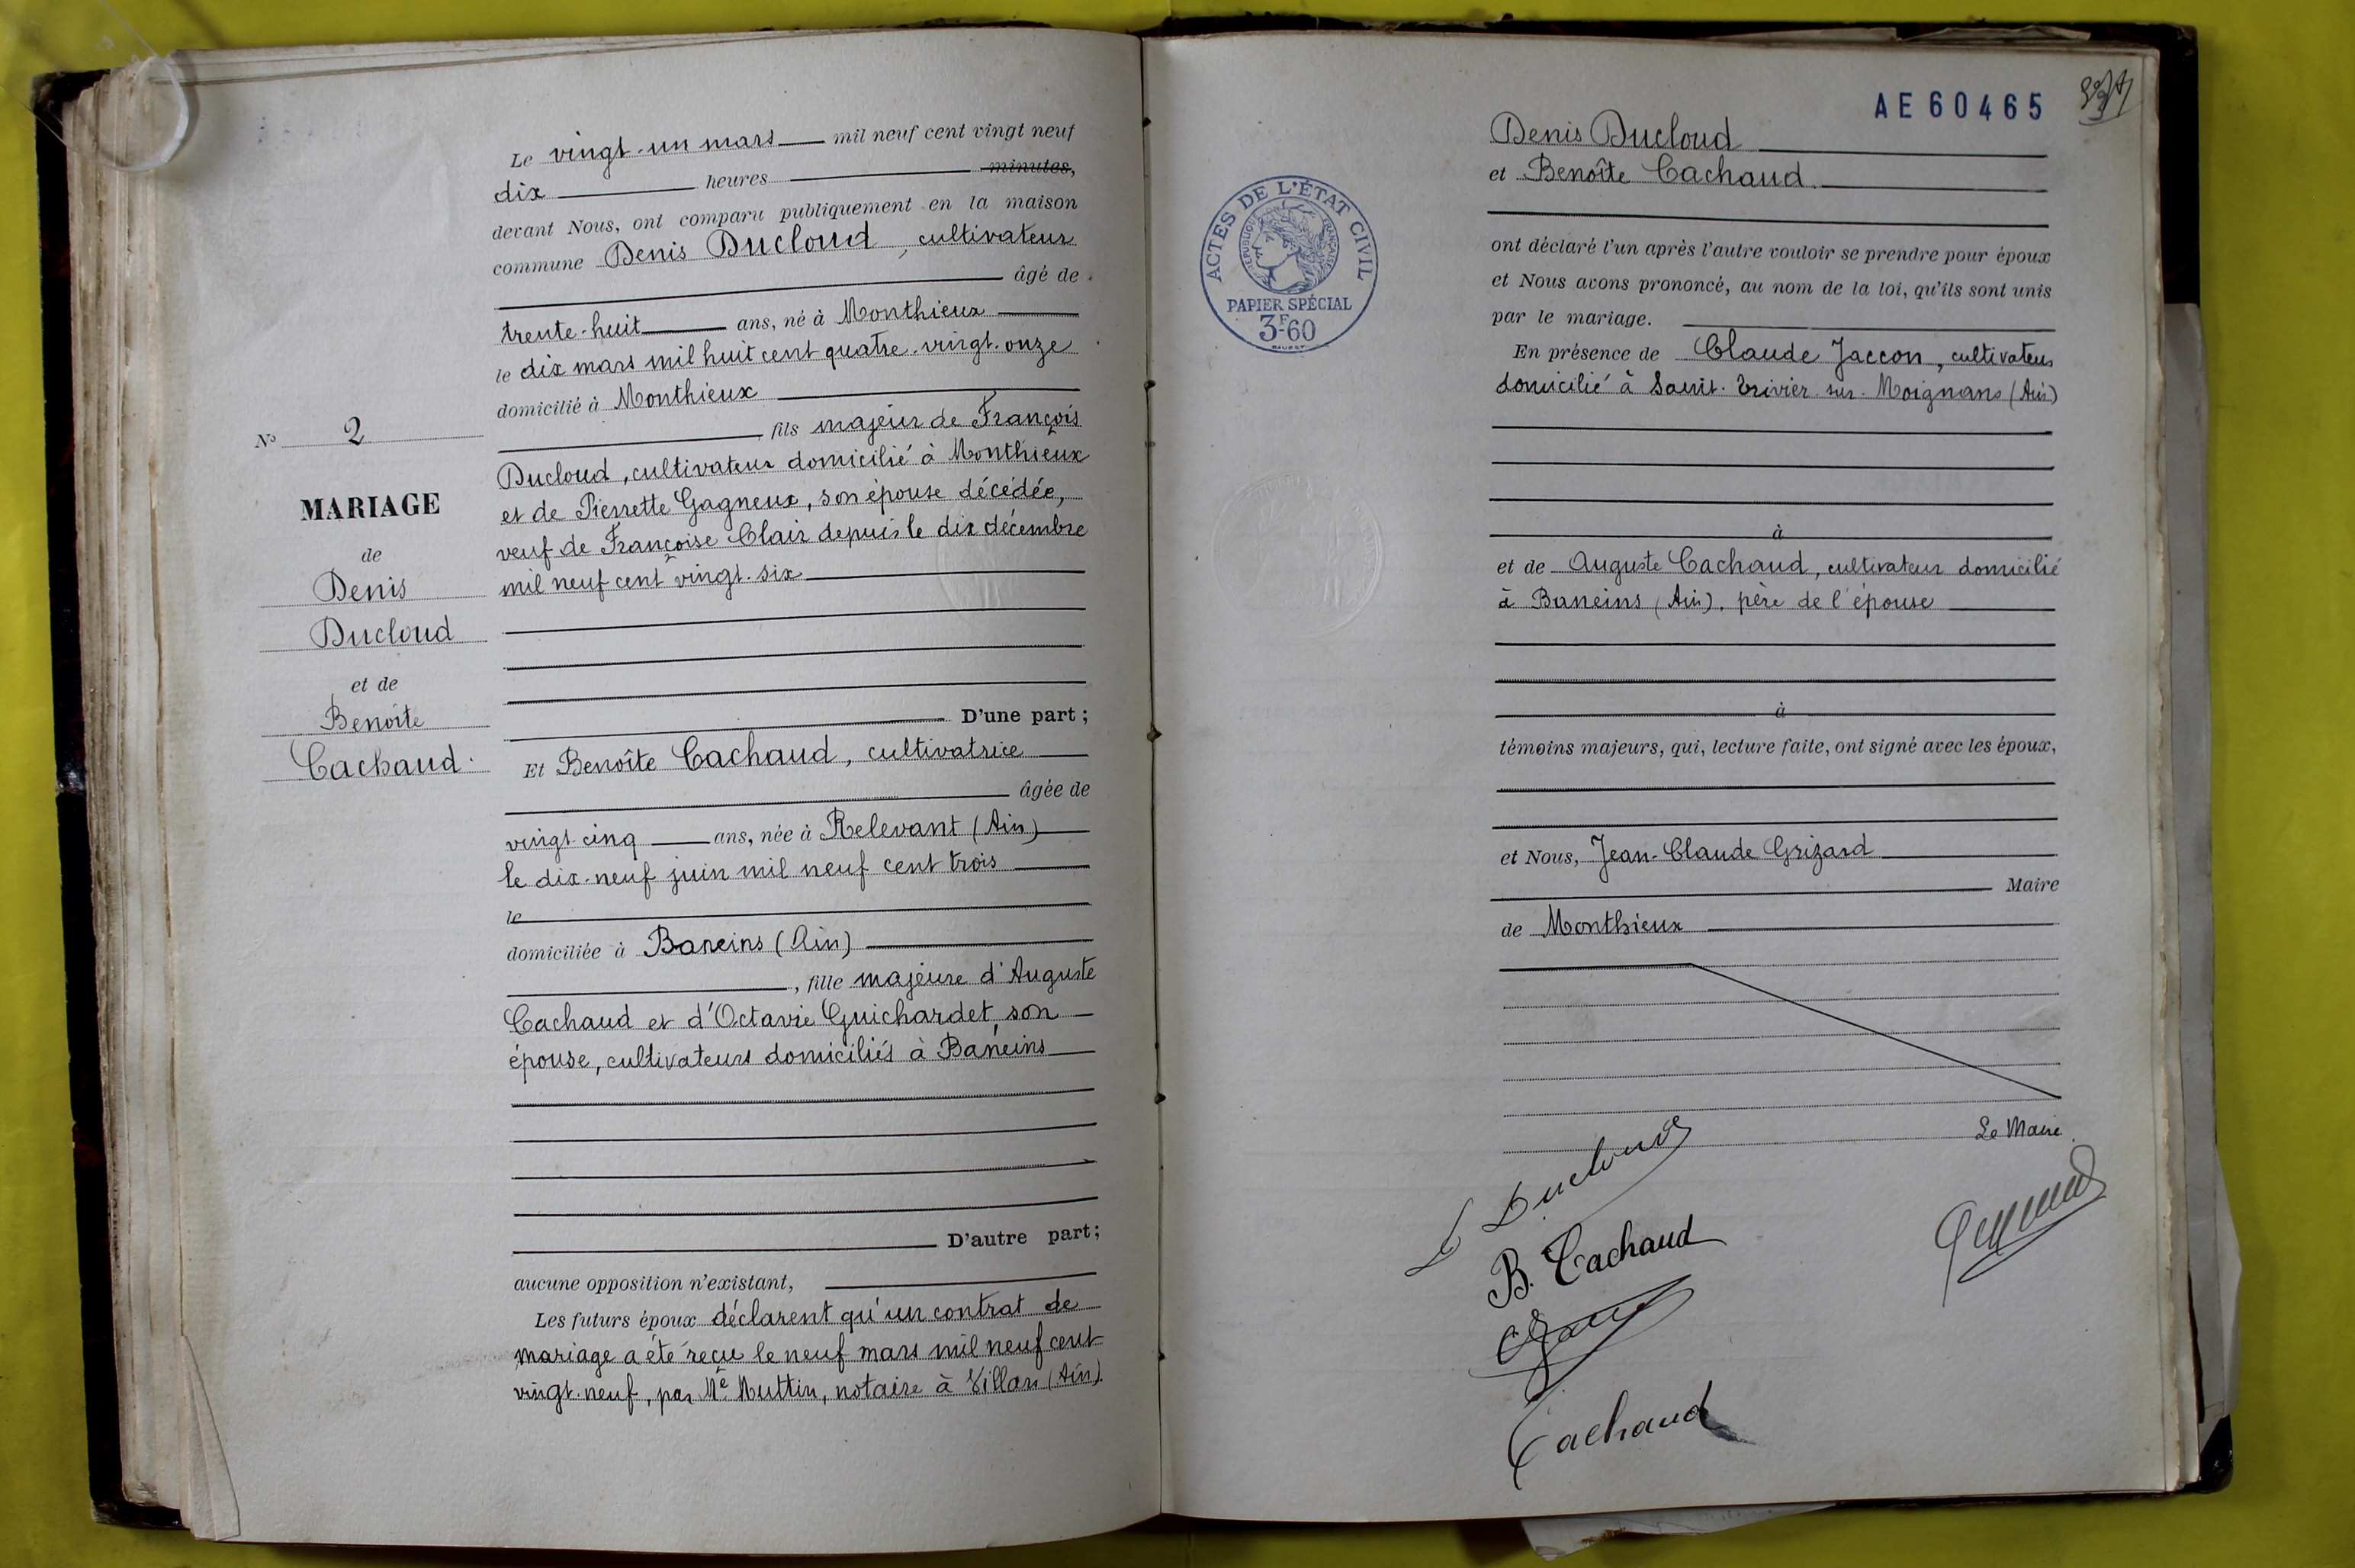 Le vingt-un mars mil neuf cent vingt neuf
dix heures minutes,
devant Nous, ont comparu publiquement en la maison
commune Denis Ducloud, cultivateur
âgé de
trente-huit ans, né à Monthieux
le dix mars mil huit cent quatre-vingt-onze
domicilié à Monthieux
fils majeur de François
Ducloud, cultivateur domicilié à Monthieux
et de Pierrette Gagneux, son épouse décédée,
veuf de Françoise Clair depuis le dix décembre
mil neuf cent vingt-six
D'une part;
Et Benoîte Cachaud, cultivatrice
âgée de
vingt-cinq ans, née à Relevant (Ain)
le dix-neuf juin mil neuf cent trois
le
domiciliée à Baneins (Ain)
, fille majeure d'Auguste
Cachaud et d'Octavie Guichardet, son
épouse, cultivateurs domiciliés à Baneins
D'autre part;
aucune opposition n'existant,
Les futurs époux déclarent qu'un contrat de
mariage a été reçu le neuf mars mil neuf cent
vingt-neuf, par Me Muttin, notaire à Villars (Ain).
No 2
MARIAGE
de
Denis
Ducloud
et de
Benoîte
Cachaud.
AE 60465
ACTES DE L'ÉTAT CIVIL
RÉPUBLIQUE FRANÇAISE
PAPIER SPÉCIAL
3F-60
Denis Ducloud
et Benoîte Cachaud.
ont déclaré l'un après l'autre vouloir se prendre pour époux
et Nous avons prononcé, au nom de la loi, qu'ils sont unis
par le mariage.
En présence de Claude Jaccon, cultivateur
domicilié à Saint-Trivier-sur-Moignans (Ain)
à
et de Auguste Cachaud, cultivateur domicilié
à Baneins (Ain), père de l'épouse
à
témoins majeurs, qui, lecture faite, ont signé avec les époux,
et Nous, Jean-Claude Grizard
Maire
de Monthieux
Le Maire
Ducloud
B. Cachaud
Cachaud